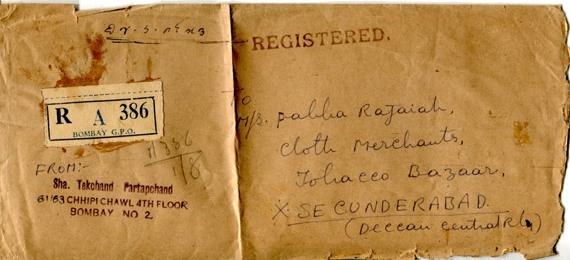 REGISTERED.
R A 386
BOMBAY G.P.O.
FROM:-
Sha. Takchand Partapchand
61/63 CHHIPI CHAWL 4TH FLOOR
BOMBAY NO 2.
To
M/s. Pabba Rajaiah,
Cloth Merchants,
Tobacco Bazaar,
X SECUNDERABAD.
(Deccan Central Rly)